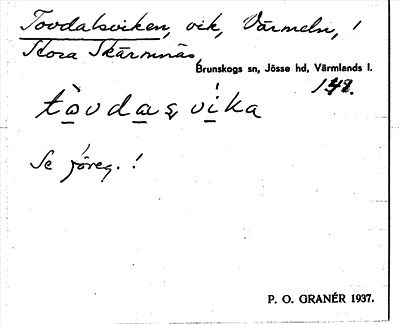 Tovdalsviken, vik, Värmeln, /
Stora Skärmnäs,
Brunskogs sn, Jösse hd, Värmlands l.
148.
tòvdasvíka
Se föreg. !
P. O. GRANÉR 1937.